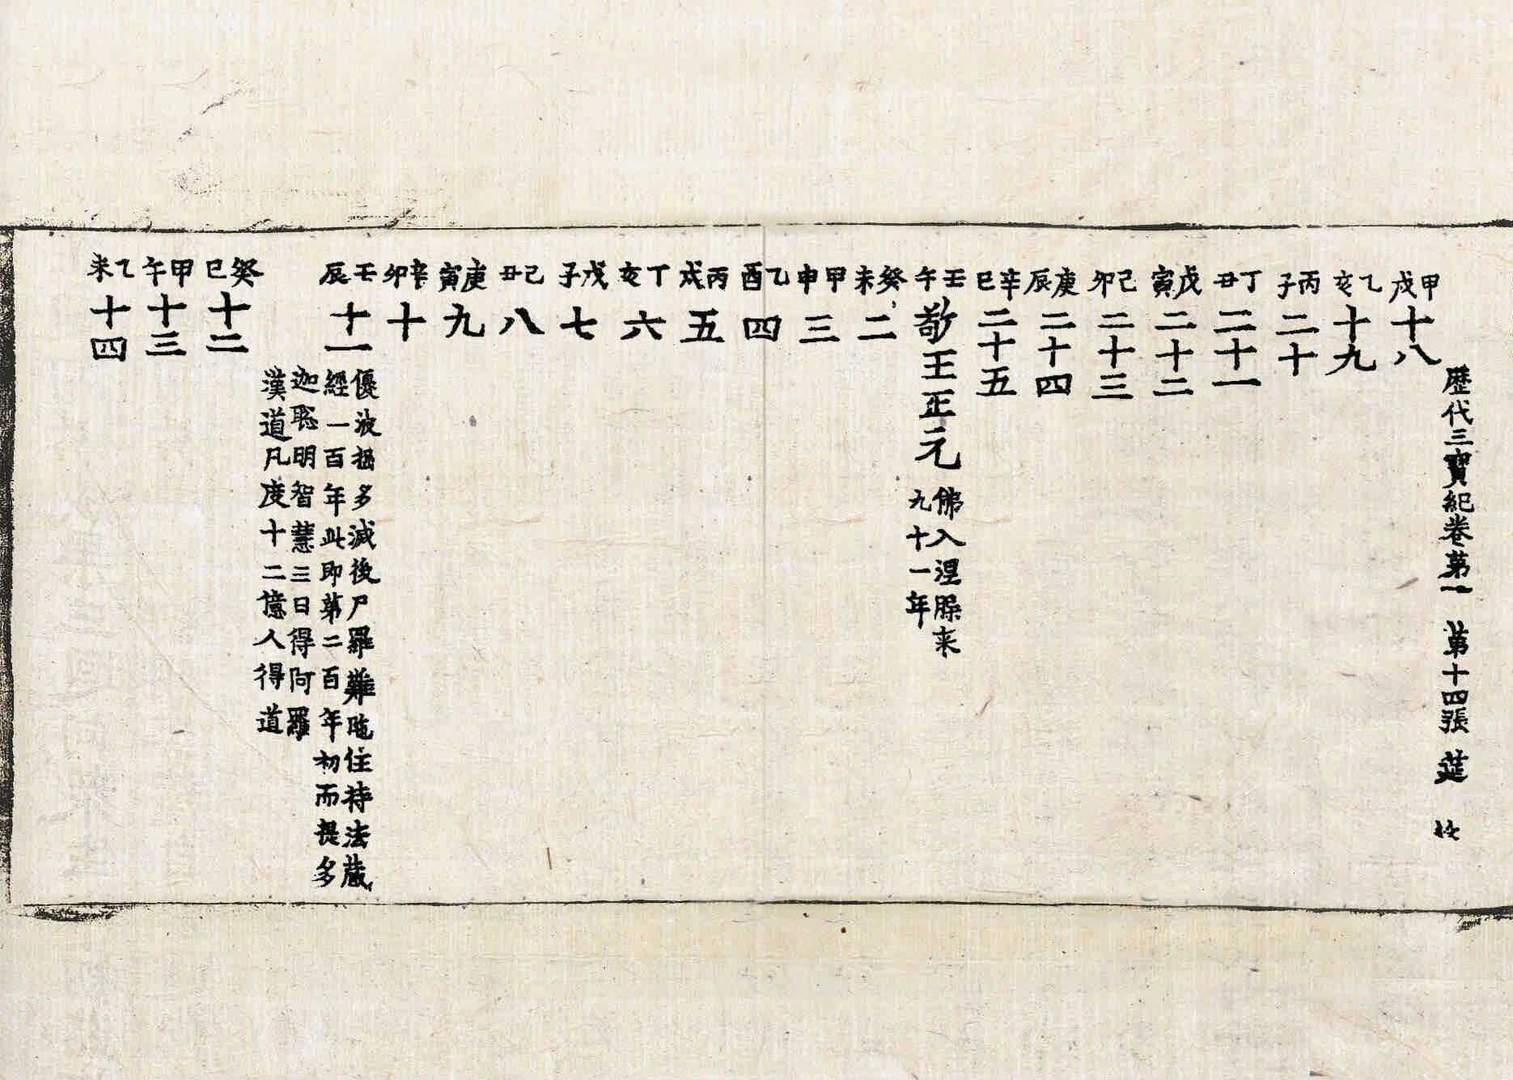 歷代三寶紀卷第一 第十四張 莚
甲戌 十八
乙亥 十九
丙子 二十
丁丑 二十一
戊寅 二十二
己卯 二十三
庚辰 二十四
辛巳 二十五
壬午 敬王正元 佛入涅槃来
九十一年
癸未 二
甲申 三
乙酉 四
丙戌 五
丁亥 六
戊子 七
己丑 八
庚寅 九
辛卯 十
壬辰 十一
優波掘多滅後尸羅難陁住持法藏
經一百年此即第二百年初而提多
迦聡明智慧三日得阿羅
漢道凡度十二億人得道
癸巳 十二
甲午 十三
乙未 十四